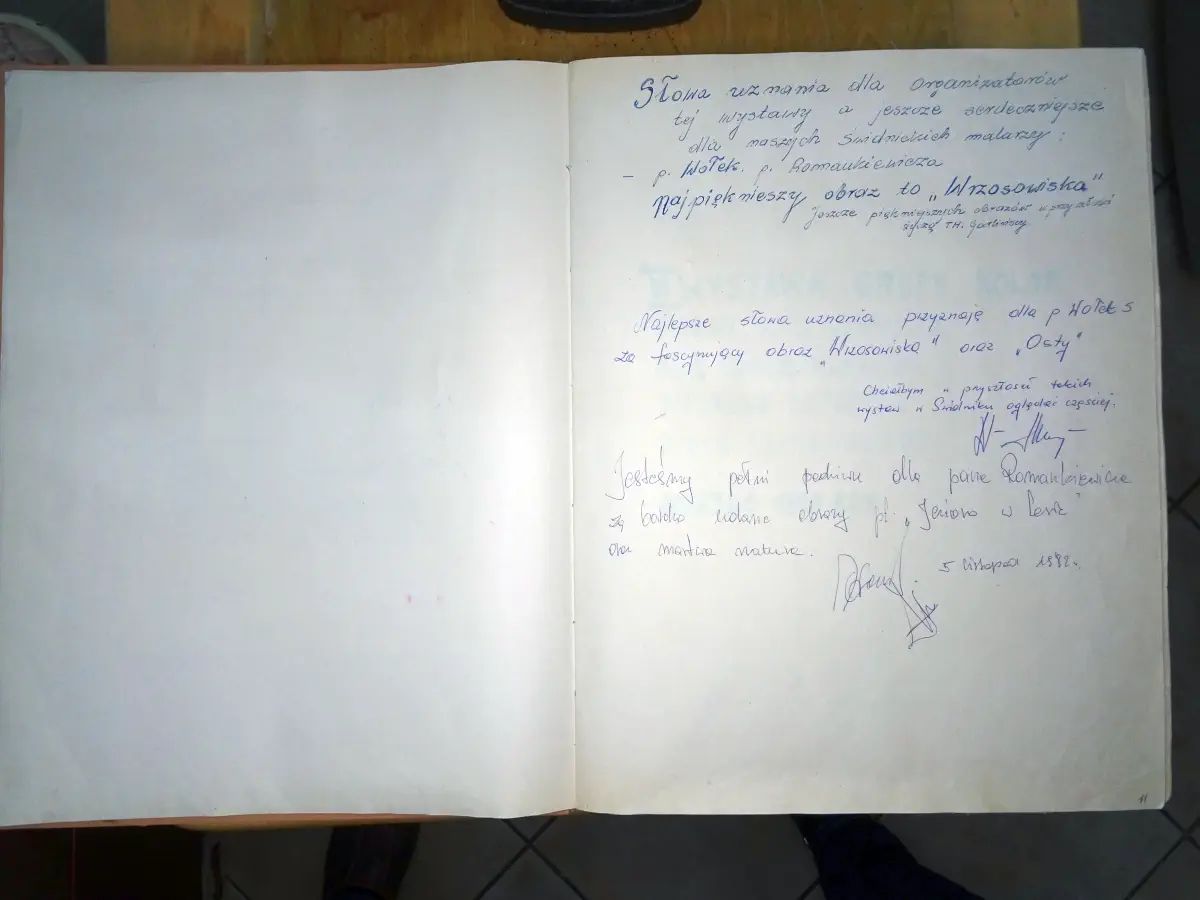 Słowa uznania dla organizatorów
tej wystawy a jeszcze serdeczniejsze
dla naszych świdnickich malarzy:
– p. Wołek, p. Romankiewicza
Najpiękniejszy obraz to „Wrzosowiska"
Jeszcze piękniejszych obrazów w przyszłości
życzę TH.
Najlepsze słowa uznania przyznaję dla p Wołek S
za fascynujący obraz „Wrzosowiska" oraz „Osty"
Chciałbym w przyszłości takich
wystaw w Świdniku oglądać częściej.
Jesteśmy pełni podziwu dla pana Romankiewicza
za bardzo udane obrazy pt. „Jezioro w lesie"
oraz martwa natura.
5 listopad 1982r.
11